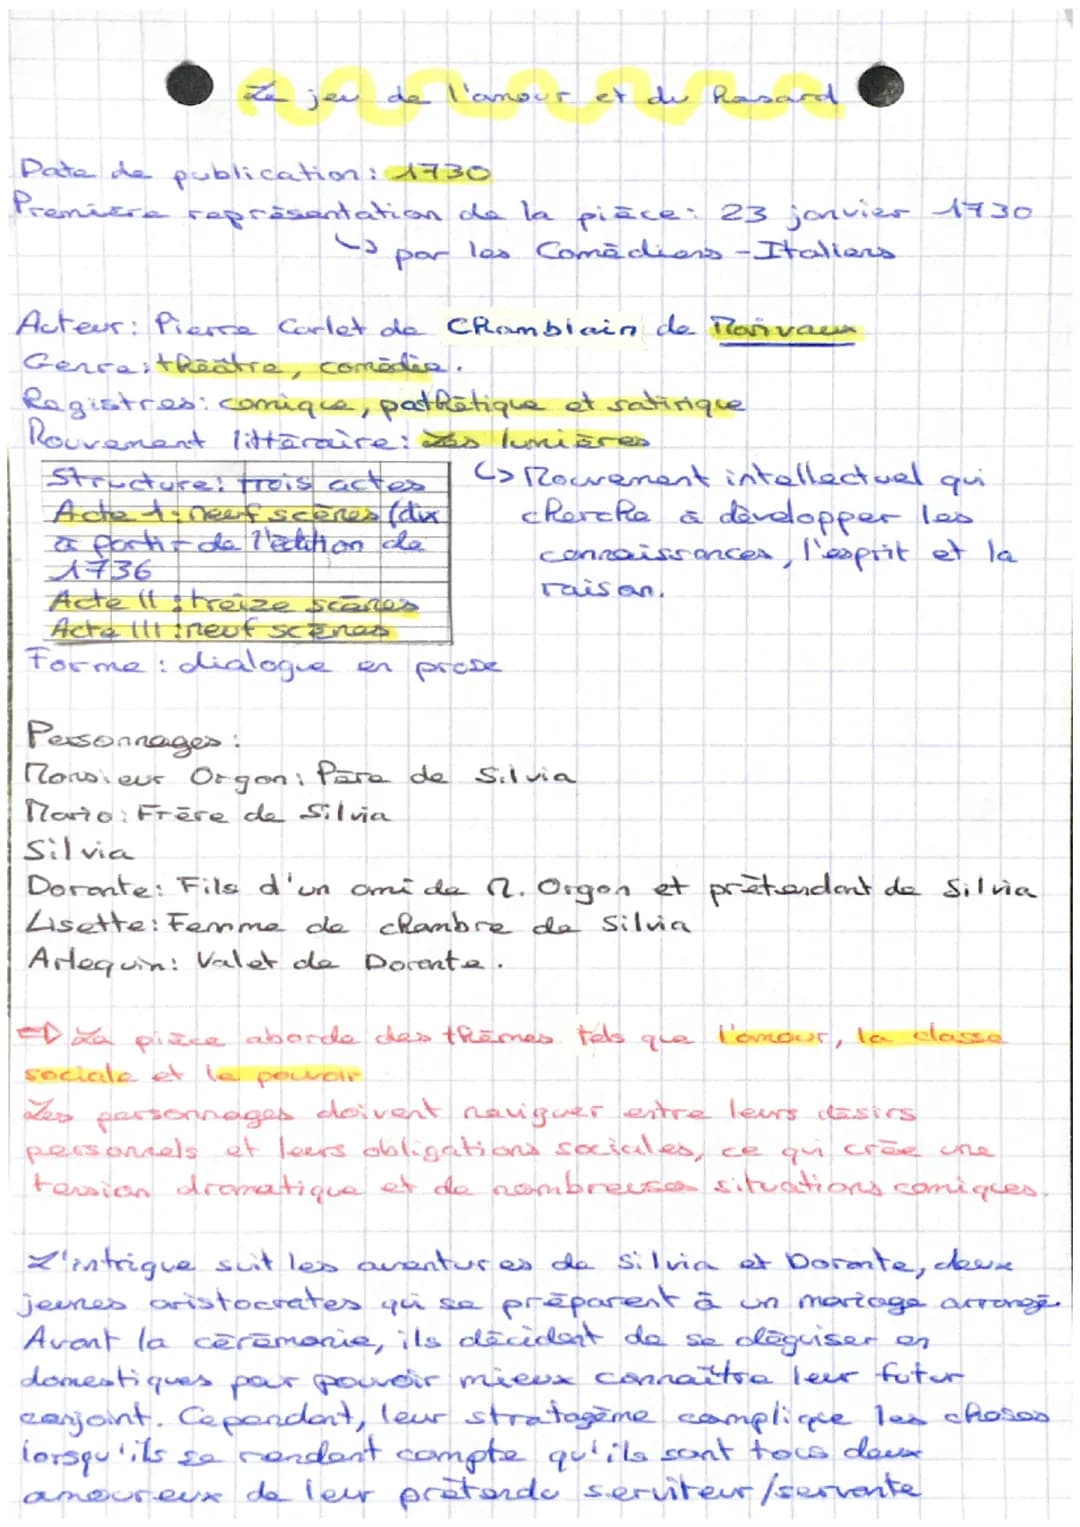 Le jeu de l'amour et du hasard
Date de publication : 1730
Première représentation de la pièce : 23 janvier 1730
↳ par les Comédiens - Italiens
Acteur : Pierre Carlet de Chamblain de Marivaux
Genre : théâtre, comédie.
Registres : comique, pathétique et satirique
Mouvement littéraire : Les lumières
↳ Mouvement intellectuel qui
cherche à développer les
connaissances, l'esprit et la
raison.
Structure : trois actes
Acte 1 : neuf scènes (dix
à partir de l'édition de
1736
Acte II : treize scènes
Acte III : neuf scènes
Forme : dialogue en prose
Personnages :
Monsieur Orgon : Père de Silvia
Mario : Frère de Silvia
Silvia
Dorante : Fils d'un ami de M. Orgon et prétendant de Silvia
Lisette : Femme de chambre de Silvia
Arlequin : Valet de Dorante.
⇨ La pièce aborde des thèmes tels que l'amour, la classe
sociale et le pouvoir
Les personnages doivent naviguer entre leurs désirs
personnels et leurs obligations sociales, ce qui crée une
tension dramatique et de nombreuses situations comiques.
L'intrigue suit les aventures de Silvia et Dorante, deux
jeunes aristocrates qui se préparent à un mariage arrangé.
Avant la cérémonie, ils décident de se déguiser en
domestiques pour pouvoir mieux connaître leur futur
conjoint. Cependant, leur stratagème complique les choses
lorsqu'ils se rendent compte qu'ils sont tous deux
amoureux de leur prétendu serviteur/servante